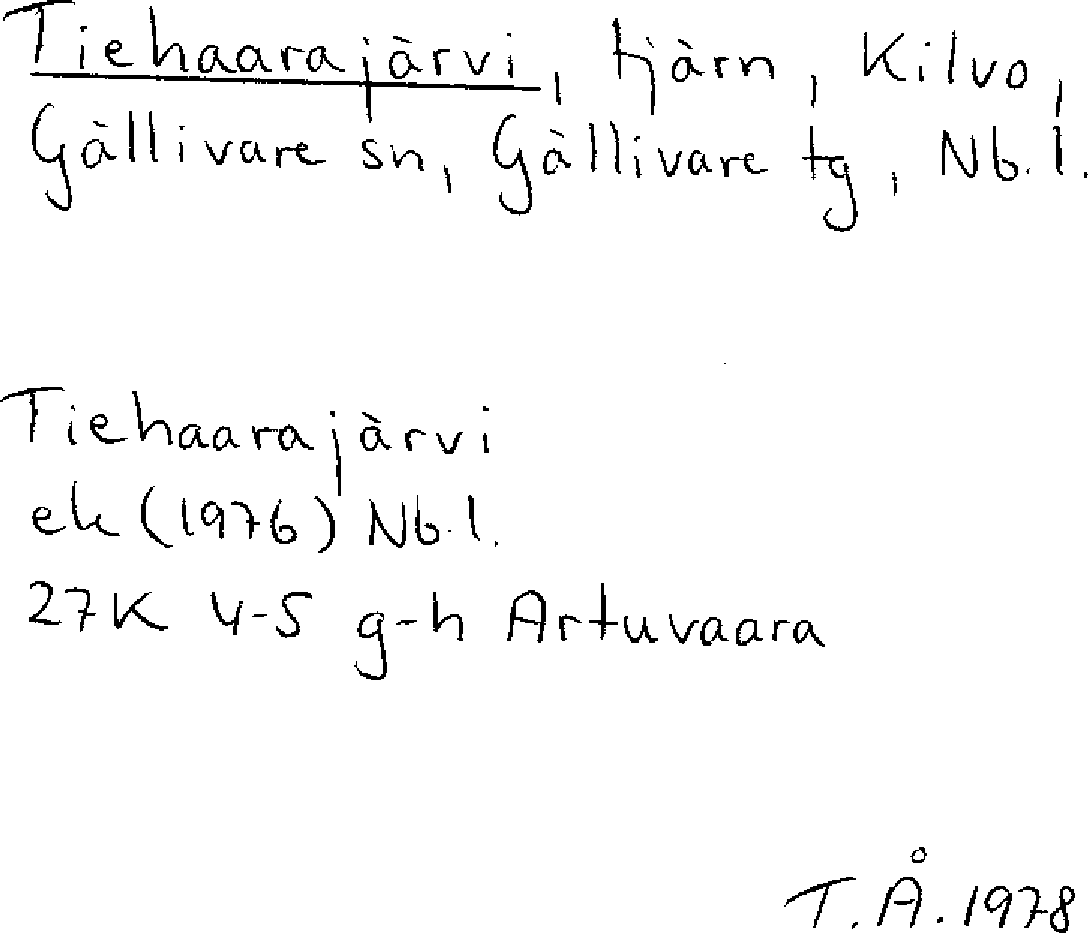 Tiehaarajärvi, tjärn, Kilvo,
Gällivare sn, Gällivare tg, Nb.l.
Tiehaarajärvi
ek (1976) Nb.l.
27K 4-5 g-h Artuvaara
T.Å.1978